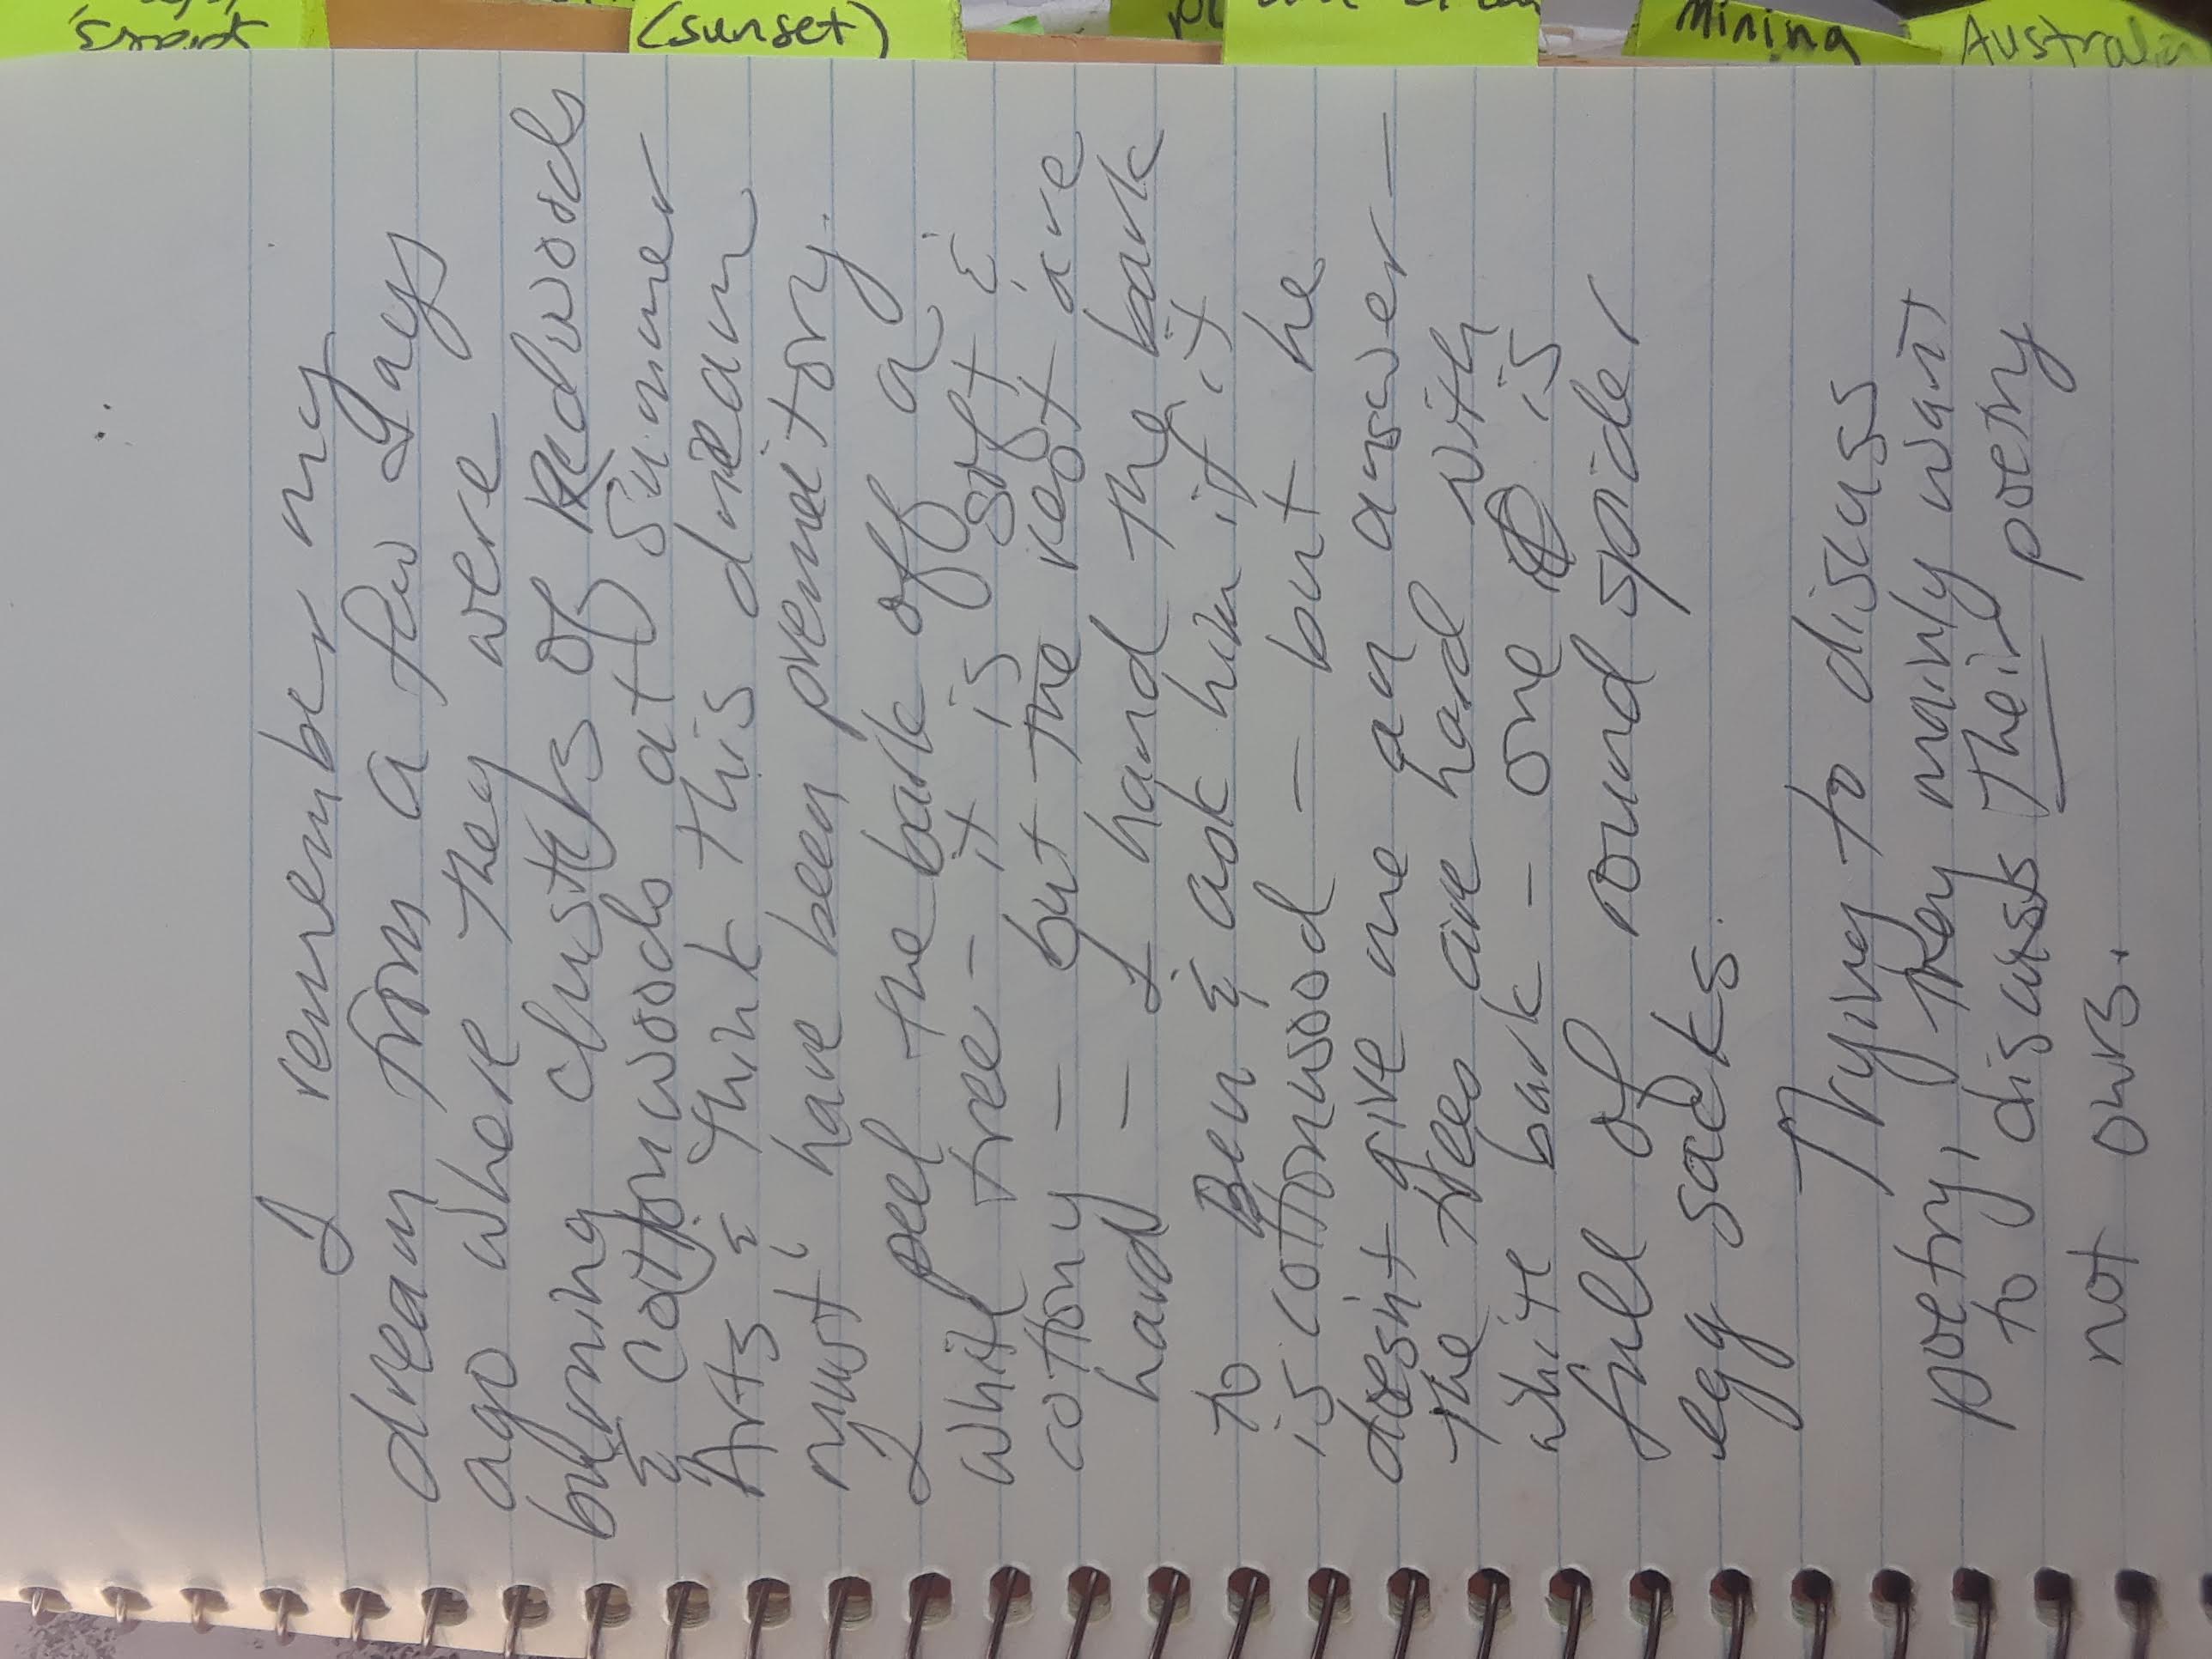 (sunset)
Mining
Australia
I remember my
dream from a few days
ago where they were
burning clusters of Redwoods
& cottonwoods at Summer
Arts & think this dream
must have been premeitory.
I peel the bark off a
white tree - it is soft &
cottony - but the rest are
hard - I hand the bark
to Ben & ask him if it
is cottonwood - but he
doesn't give me an answer -
the trees are hard with
white bark - one is
full of round spider
egg sacks.
Trying to discuss
poetry, they mainly want
to discuss their poetry
not ours.